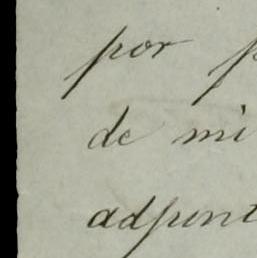 por p
de mi
adjunt